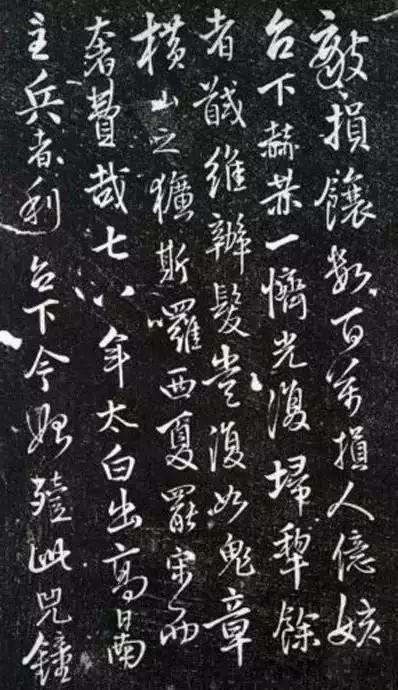 損饟數百萬損人億姟
台下赫然一懠光復埽犂餘
者馘維辮髮豈復如鬼章
橫山之獷斯囉西夏罷宋而
奢費哉七八年太白出高日南
主兵者利台下今始殪此兕鐘